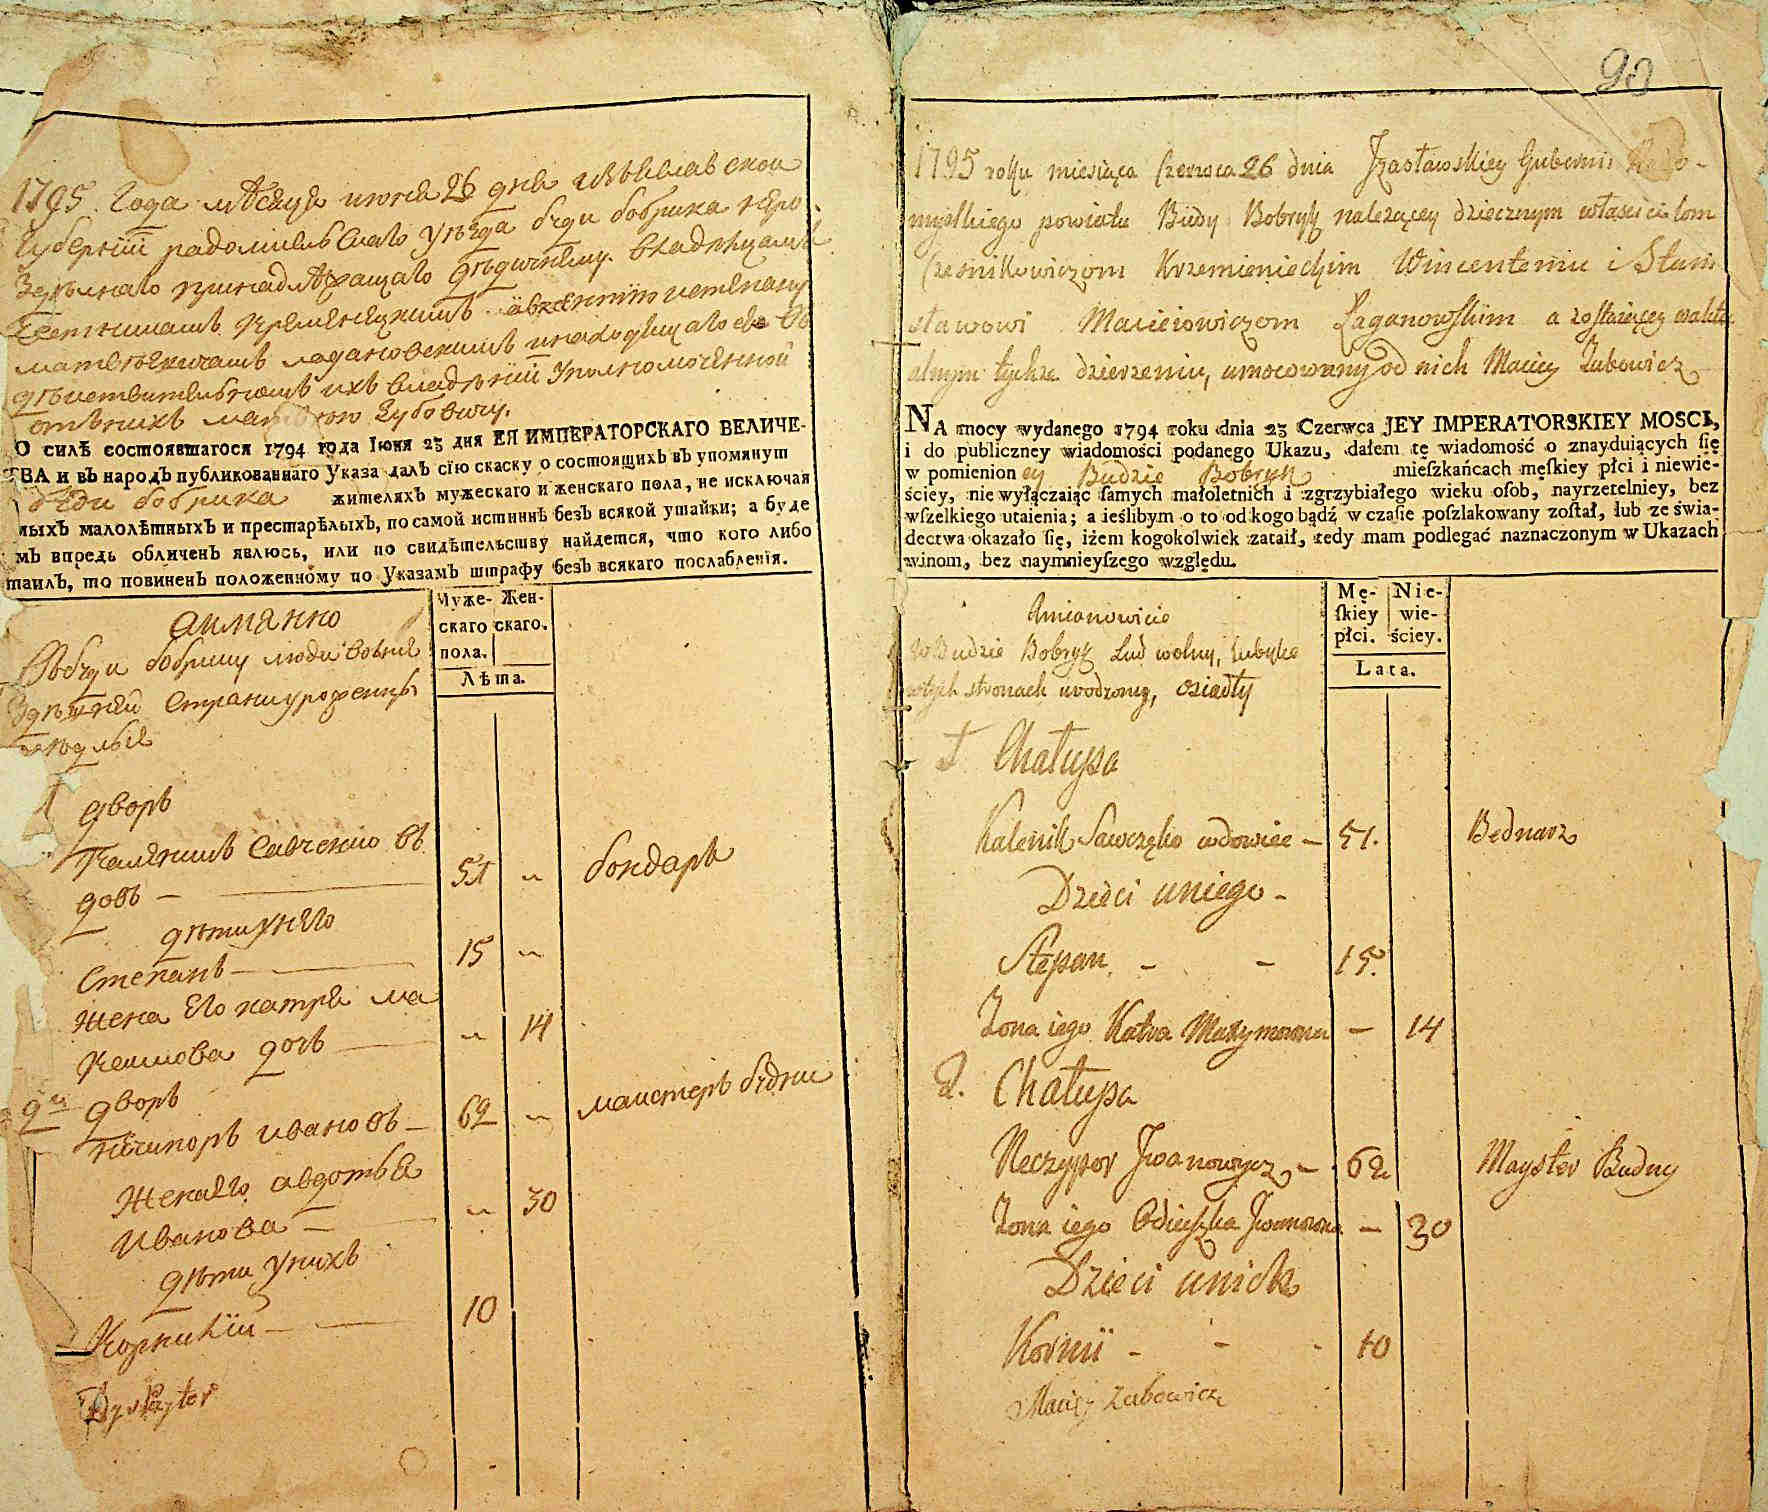 1795 Года мѣсяца июня 26 дня изъяславской
губернїи радомысльскаго уѣзда буди бобрика
принадлѣжащаго дѣдичнымъ владѣлцамъ
кременецкимъ
матвѣевичамъ лагановскимъ и находящагося въ
дѣйствительномъ ихъ владѣнїи уполномоченной
отъ нихъ зубовичъ.
О силѣ состоявшагося 1794 года Іюня 23 дня ЕЯ ИМПЕРАТОРСКАГО ВЕЛИЧЕ-
ТВА и въ народъ публикованнаго Указа далъ сію скаску о состоящихъ въ упомянут
буди бобрика жителяхъ мужескаго и женскаго пола, не исключая
мыхъ малолѣтныхъ и престарѣлыхъ, по самой истиннѣ безъ всякой утайки; а буде
мъ впредь обличенъ явлюсь, или по свидѣтельству найдется, что кого либо
таилъ, то повиненъ положенному по Указамъ штрафу безъ всякаго послабленія.
Муже- Жен-
скаго скаго.
пола.
Лѣта.
аимянно
Въ буди бобрику люди волные
здѣшней страны уроженцы
1 дворъ
Каленикъ Савченко въ
довъ — 51 „ бондарь
дѣти у него
Степанъ — 15 „
Жена его катря ма
ксимова дочь — „ 14
2й дворъ
нечипоръ ивановъ — 62 „ маистеръ будни
Жена его авдотья
Иванова — „ 30
дѣти у нихъ
Корнилїй — 10
90
1795 roku miesiąca Czerwca 26 dnia Jzasławskiey Gubernii Rado-
myslkiego powiatu Budy Bobryk należącey dziecznym właścicielom
Cześnikowiczom Krzemienieckim Wincentemu i Stani
sławowi Maciejowiczom Łaganowskim a zostaiącey w aktu
alnym tychże dzierżeniu, umocowany od nich Maciey Zubowicz
NA mocy wydanego 1794 roku dnia 23 Czerwca JEY IMPERATORSKIEY MOSCI,
i do publiczney wiadomości podanego Ukazu, dałem tę wiadomość o znayduiących się
w pomienion ey Budzie Bobryk mieszkańcach męskiey płci i niewie-
ściey, nie wyłączaiąc samych małoletnich i zgrzybiałego wieku osob, nayrzetelniey, bez
wszelkiego utaienia; a ieślibym o to od kogo bądź w czasie poszlakowany został, lub ze świa-
dectwa okazało się, iżem kogokolwiek zataił, tedy mam podlegać naznaczonym w Ukazach
winom, bez naymnieyszego względu.
Mę- Nie-
skiey wie-
płci. ściey.
Lata.
Amianowicie
w Budzie Bobryk Lud wolny,
wtych stronach urodzony, osiadły
1 Chałupa
Kalenik Sawczęko wdowiec — 51. Bednarz
Dzieci uniego -
Stepan - - 15.
Zona iego Katra Maxymowna — 14
2. Chałupa
Neczypor Jwanowycz — 62 Mayster Budny
Zona iego Jwanowna — 30
Dzieci unich
Kornii - - - 10
Maciey Zubowicz